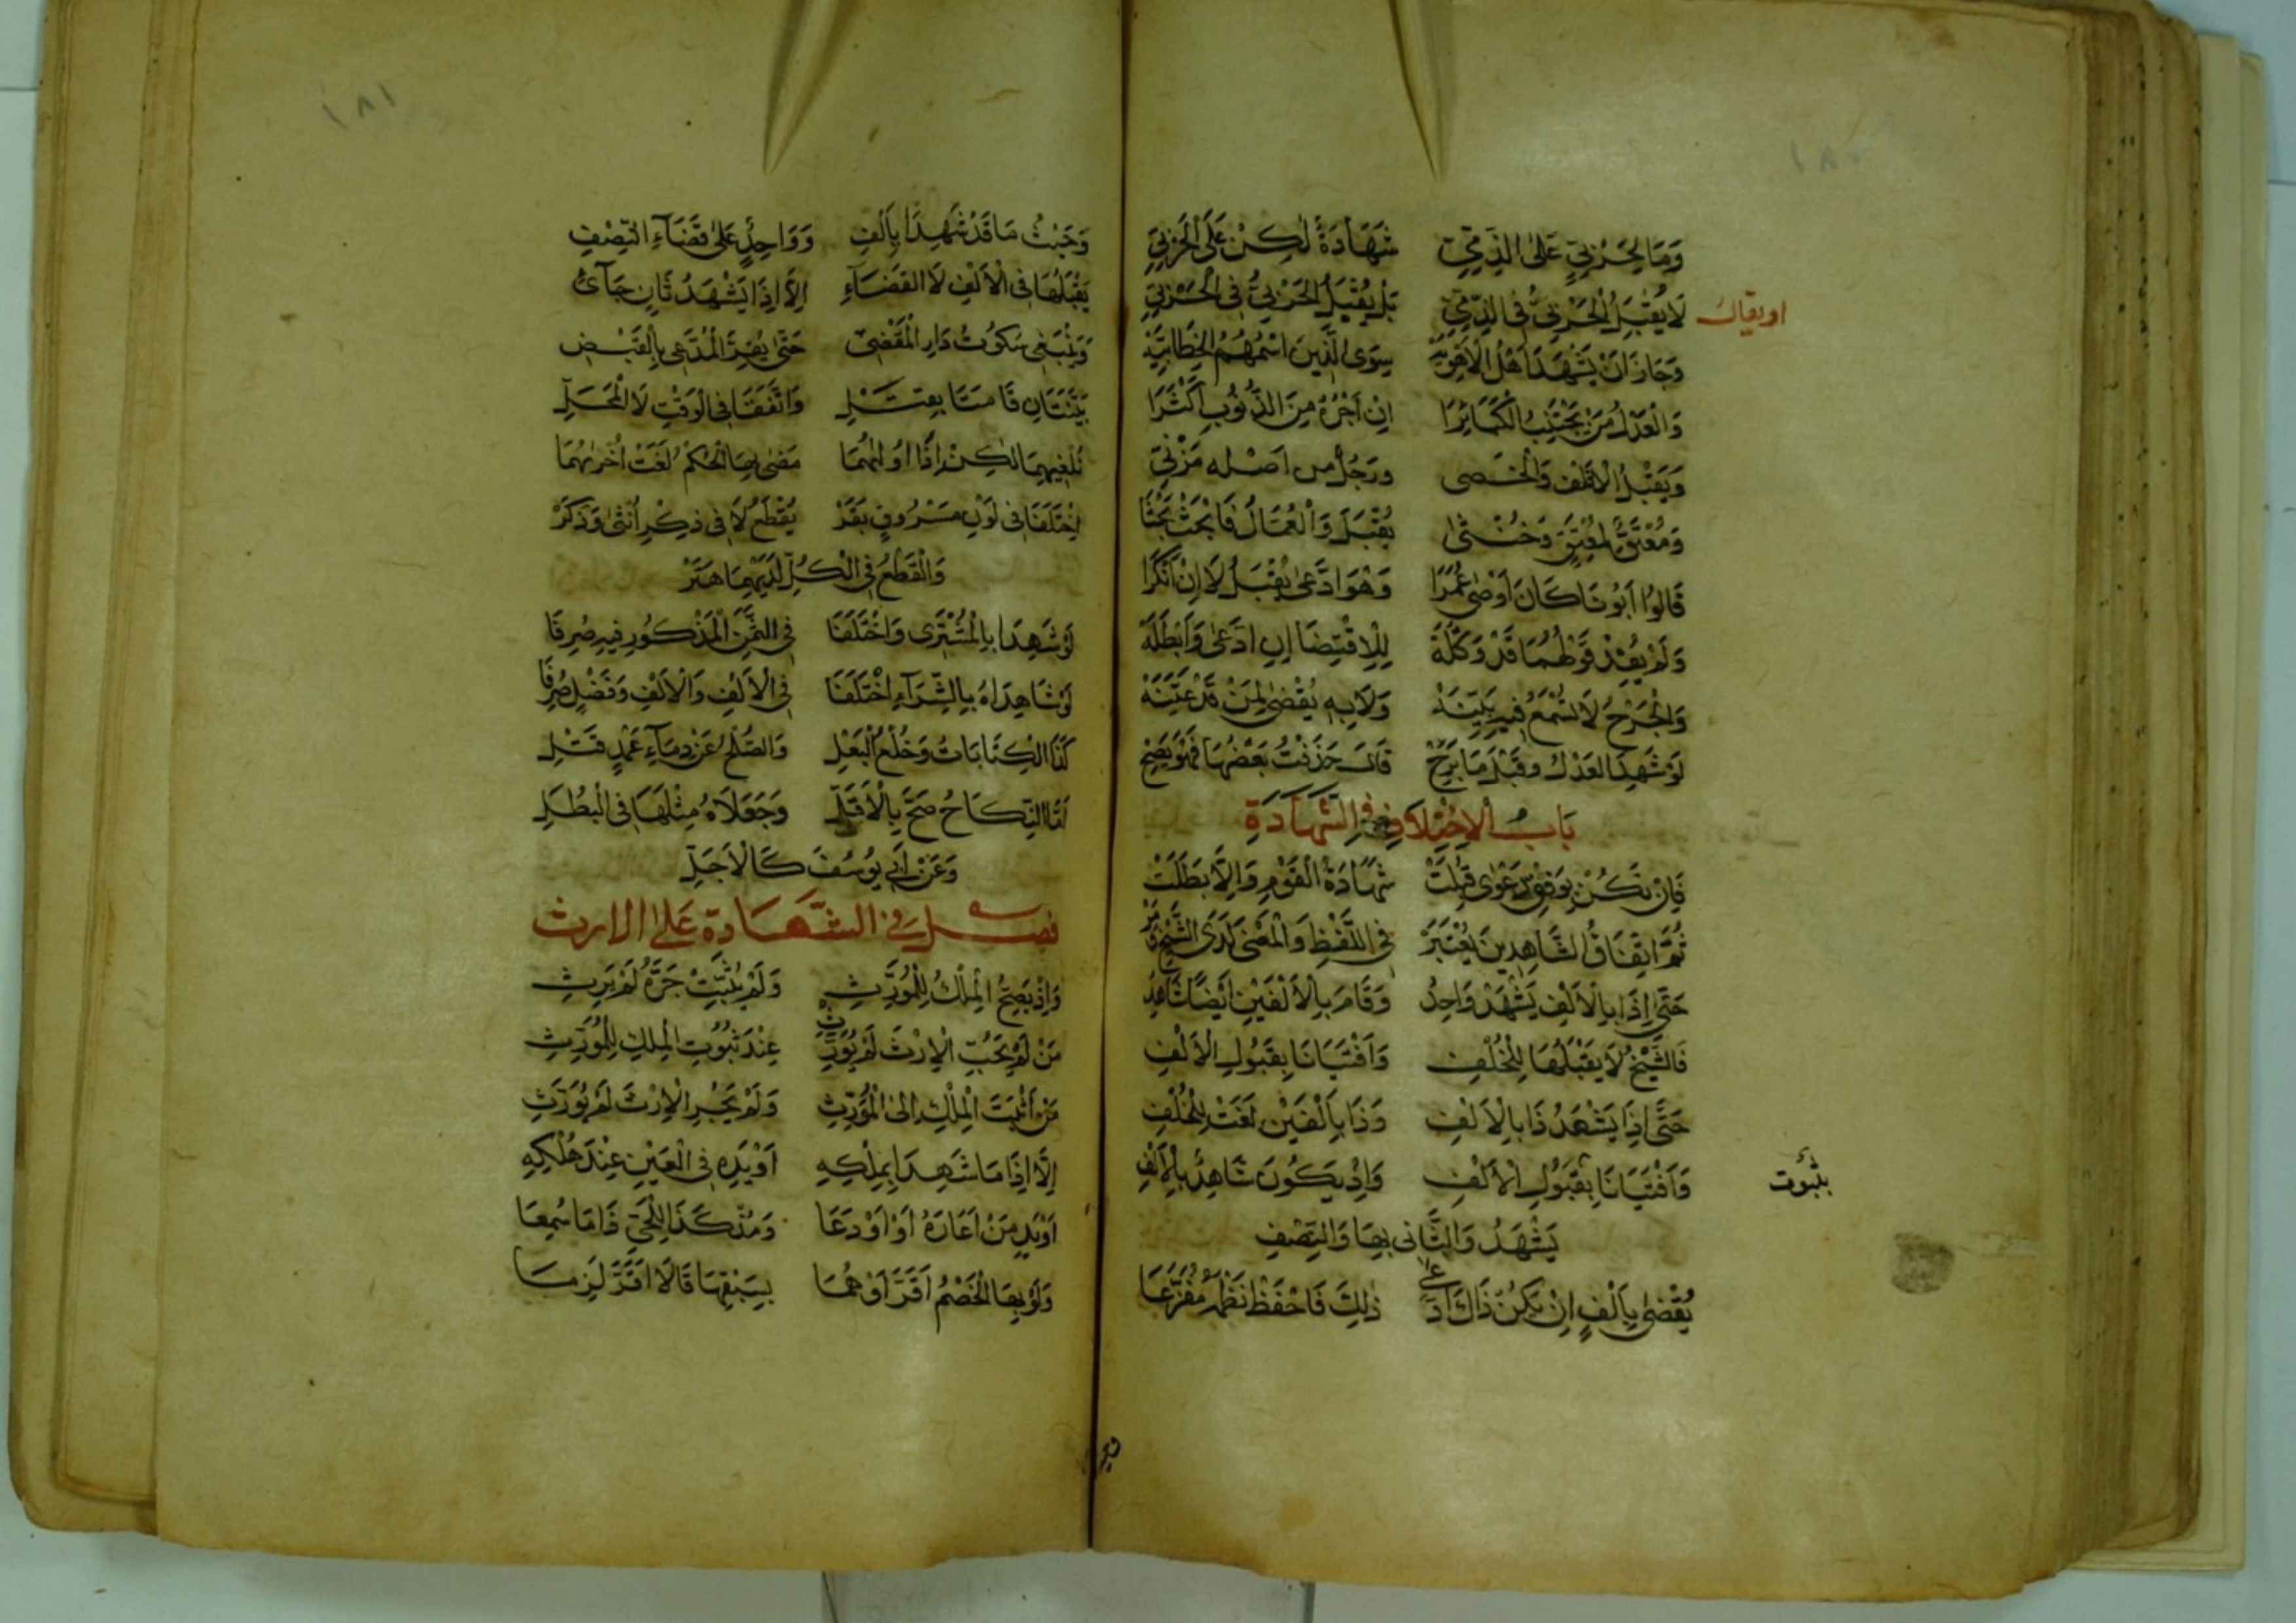 ١٨٠
وَمَا لِحَرْبِيٍّ عَلَى الذِّمِّيِّ شَهَادَةٌ لٰكِنْ عَلَى الْحَرْبِيِّ
او يقال
لَا يُقْبَلُ الْحَرْبِيُّ فِي الذِّمِّيِّ بَلْ يُقْبَلُ الْحَرْبِيُّ فِي الْحَرْبِيِّ
وَجَازَ اَنْ يَشْهَدَ اَهْلُ الْاَهْوِيَةْ سِوَى الَّذِينَ اسْمُهُمُ الْخَطَّابِيَّةْ
وَالْعَدْلُ مَنْ يَجْتَنِبُ الْكَبَائِرَا اِنْ اَجْرُهُ مِنَ الذُّنُوبِ اَكْثَرَا
وَيُقْبَلُ الْاَقْلَفُ وَالْخَصِي ورَجُلٌ من اَصْلِه مَزْنِيّ
وَمُعْتَقٌ لِمُعْتِقٍ وَخُنْثٰى يُقْبَلُ وَالْعُمَّالُ فَابْحَثْ بَحْثًا
قَالُوا اَبُونَا كَانَ اَوْصٰى عُمَرَا وَهْوَ ادَّعٰى يُقْبَلُ لَا اِنْ اَنْكَرَا
وَلَمْ يُفِدْ قَوْلُهُمَا قَدْ وَكَّلَهْ لِلِاقْتِضَا اِنِ ادَّعٰى وَاَبْطَلَهْ
وَالْجَرْحُ لَا تُسْمَعُ فِيهِ بَيِّنَهْ وَلَا بِهِ يُقْضٰى لِمَنْ قَدْ عَيَّنَهْ
لَوْ شَهِدَ العَدْلُ وقَبْلَ مَا بَرِحْ قَالَ حَذَفْتُ بَعْضَهَا فَهْوَ يَصِحْ
بَابُ الْاِخْتِلَافِ فِي الشَّهَادَةِ
فَاِنْ تَكُنْ بِوَفْقِ دَعْوٰى قُبِلَتْ شَهَادَةُ الْقَوْمِ وَاِلَّا بَطَلَتْ
ثُمَّ اتِّفَاقُ الشَّاهِدِينَ يُعْتَبَرْ فِي اللَّفْظِ وَالْمَعْنٰى لَدَى الشَّيْخِ
حَتّٰى اِذَا بِالْاَلْفِ يَشْهَدْ وَاحِدُ وَقَامَ بِالْاَلْفَيْنِ اَيْضًا شَاهِدُ
فَالشَّيْخُ لَا يَقْبَلُهَا لِلْخُلْفِ وَاَفْتَيَانَا بِقَبُولِ الْاَلْفِ
حَتّٰى اِذَا يَشْهَدُ ذَا بِالْاَلْفِ وَذَا بِاَلْفَيْنِ لَغَتْ لِلْخُلْفِ
بثبوت
وَاَفْتَيَانَا بِقَبُولِ الْاَلْفِ وَاِذْ يَكُونُ شَاهِدٌ بِالْاَلْفِ
يَشْهَدُ وَالثَّانِي بِهَا وَالنِّصْفِ
يُقْضٰى بِاَلْفٍ اِنْ يَكُنْ ذَاكَ ادَّعٰى ذٰلِكَ فَاحْفَظْ نَظْمَهُ مُفَرَّعَا
١٨١
وَحَيْثُ مَا قَدْ شَهِدَا بِاَلْفِ وَوَاحِدٌ عَلٰى قَضَاءِ النِّصْفِ
يَقْبَلُهَا فِي الْاَلْفِ لَا القَضَاءِ اِلَّا اِذَا يَشْهَدُ ثَانٍ جَائِي
وَيَنْبَغِي سُكُوتُ دَارِ الْمَقْضِي حَتّٰى يُقِرَّ الْمُدَّعِي بِالْقَبْضِ
بَيِّنَتَانِ قَامَتَا بِقَتْلِ وَاتَّفَقَا فِي الْوَقْتِ لَا الْمَحَلِّ
نُلْغِيهِمَا لٰكِنْ اِذَا اُولٰهُمَا مَضٰى بِهَا الْحُكْمُ لَغَتْ اُخْرٰهُمَا
اِخْتَلَفَا فِي لَوْنِ مَسْرُوقٍ بَقَرْ يُقْطَعُ لَا فِي ذِكْرِ اُنْثٰى وَذَكَرْ
وَالْقَطْعُ فِي الْكُلِّ لَدَيْهِمَا هَدَرْ
لَوْ شَهِدَا بِالْمُشْتَرٰى وَاخْتَلَفَا فِي الثَّمَنِ الْمَذْكُورِ فِيهِ صُرِفَا
لَوْ شَاهِدَاهُ بِالشِّرَاءِ اخْتَلَفَا فِي الْاَلْفِ وَالْاَلْفِ وَفَضْلٍ صُرِفَا
كَذَا الْكِتَابَاتُ وَخُلْعُ الْبَعْلِ وَالصُّلْحُ عَنْ دِمَاءِ عَمْدٍ قَتْلِ
اَمَّا النِّكَاحُ صَحَّ بِالْاَقَلِّ وَجَعَلَاهُ مِثْلَهَا فِي الْبُطْلِ
وَعَنْ اَبِي يُوسُفَ كَالْاَجَلِّ
فصل في الشَّهَادَة عَلى الارث
وَاِذْ يَصِحُّ الْمِلْكُ لِلْمُوَرِّثِ وَلَمْ يُثَبِّتْ جَرَّهُ لَمْ يَرِثِ
مَنْ لَمْ يَجُرَّ الْاِرْثَ لَمْ يُوَرَّثِ عِنْدَ ثُبُوتِ الْمِلْكِ لِلْمُوَرِّثِ
مَنْ اَثْبَتَ الْمِلْكَ اِلَى الْمُوَرِّثِ وَلَمْ يَجُرِّ الْاِرْثَ لَمْ يُوَرَّثِ
اِلَّا اِذَا مَا شَهِدَا بِمِلْكِهِ اَوْ يَدِهِ فِي الْعَيْنِ عِنْدَ هُلْكِهِ
اَوْ يَدِ مَنْ اَعَارَهُ اَوْ اَوْدَعَا وَمُذْ كَذَا لِلْحَيِّ ذَا مَا سُمِعَا
وَلَوْ بِهَا الْخَصْمُ اَقَرَّ اَوْ هُمَا بِسَبْقِهَا قَالَا اَقَرَّ لَزِمَا